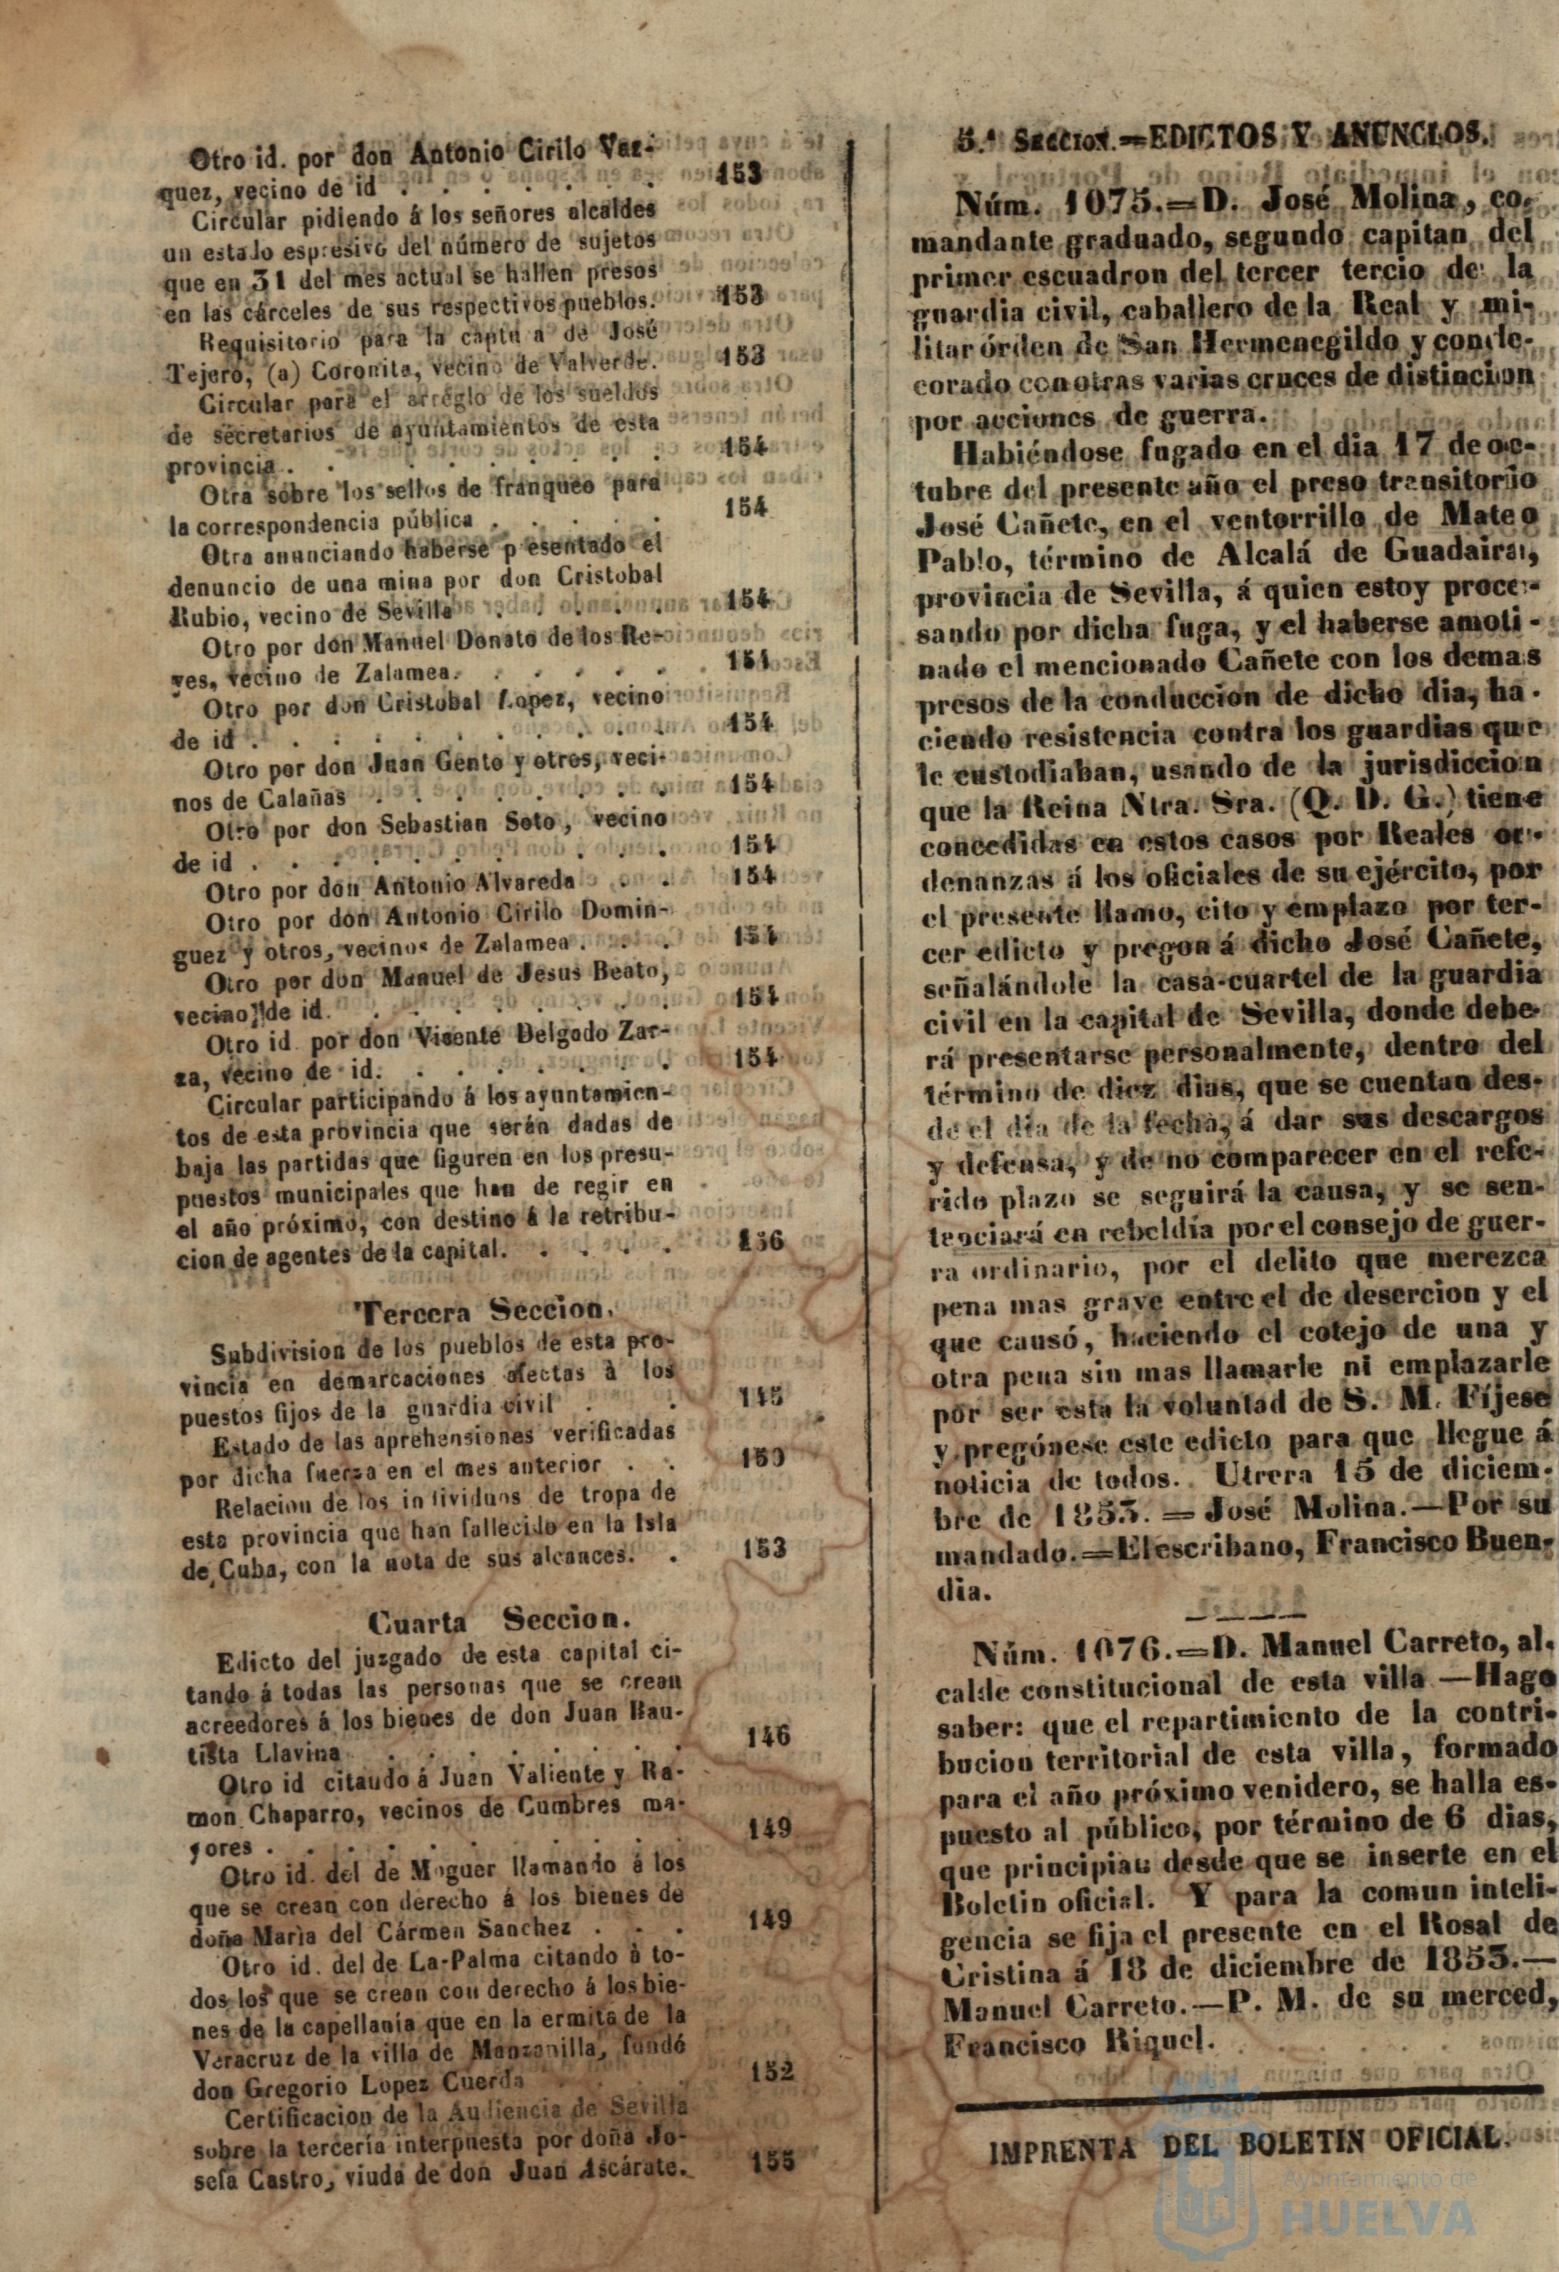 Otro id. por don Antonio Cirilo Vaz-
quez, vecino de id . . . . . . . 153
Circular pidiendo á los señores alcaldes
un estado espresivo del número de sujetos
que en 31 del mes actual se hallen presos
en las cárceles de sus respectivos pueblos. 153
Requisitorio para la captu a de José
Tejero, (a) Coronita, vecino de Valverde. 153
Circular para el arreglo de los sueldos
de secretarios de ayuntamientos de esta
provincia . . . . . . . . . 154
Otra sobre los sellos de franqueo para
la correspondencia pública . . . . . 154
Otra anunciando haberse p esentado el
denuncio de una mina por don Cristobal
Rubio, vecino de Sevilla . . . . . 154
Otro por don Manuel Donato de los Re-
yes, vecino de Zalamea. . . . . . . 154
Otro por don Cristobal Lopez, vecino
de id . . . . . . . . . . . 154
Otro por don Juan Gento y otros, veci-
nos de Calañas . . . . . . . . 154
Otro por don Sebastian Soto, vecino
de id . . . . . . . . . . . 154
Otro por don Antonio Alvareda . . . 154
Otro por don Antonio Cirilo Domin-
guez y otros, vecinos de Zalamea . . . 154
Otro por don Manuel de Jesus Beato,
vecino de id. . . . . . . . . 154
Otro id. por don Vicente Delgado Zar-
za, vecino de id. . . . . . . . 154
Circular participando á los ayuntamien-
tos de esta provincia que serán dadas de
baja las partidas que figuren en los presu-
puestos municipales que han de regir en
el año próximo, con destino á la retribu-
cion de agentes de la capital. . . . . 156
Tercera Seccion.
Subdivision de los pueblos de esta pro-
vincia en demarcaciones afectas à los
puestos fijos de la guardia civil . . 145
Estado de las aprehensiones verificadas
por dicha fuerza en el mes anterior . . 150
Relacion de los individuos de tropa de
esta provincia que han fallecido en la Isla
de Cuba, con la nota de sus alcances. . 153
Cuarta Seccion.
Edicto del juzgado de esta capital ci-
tando á todas las personas que se crean
acreedores á los bienes de don Juan Bau-
tista Llavina . . . . . . . . 146
Otro id citando á Juan Valiente y Ra-
mon Chaparro, vecinos de Cumbres ma-
yores . . . . . . . . . . 149
Otro id. del de Moguer llamando á los
que se crean con derecho á los bienes de
doña Marìa del Cármen Sanchez . . . 149
Otro id. del de La-Palma citando à to-
dos los que se crean con derecho á los bie-
nes de la capellanía que en la ermita de la
Veracruz de la villa de Manzanilla, fundó
don Gregorio Lopez Cuerda . . . . 152
Certificacion de la Audiencia de Sevilla
sobre la tercería interpuesta por doña Jo-
sefa Castro, viuda de don Juan Ascárate. 155
5.ª Seccion.=EDICTOS Y ANUNCIOS.
Núm. 1075.=D. José Molina, co-
mandante graduado, segundo capitan del
primer escuadron del tercer tercio de la
guardia civil, caballero de la Real y mi-
litar órden de San Hermenegildo y conde-
corado con otras varias cruces de distincion
por acciones de guerra.
Habiéndose fugado en el dia 17 de oc-
tubre del presente año el preso transitorio
José Cañete, en el ventorrillo de Mateo
Pablo, término de Alcalá de Guadaira,
provincia de Sevilla, á quien estoy proce-
sando por dicha fuga, y el haberse amoti-
nado el mencionado Cañete con los demas
presos de la conduccion de dicho dia, ha-
ciendo resistencia contra los guardias que
le custodiaban, usando de la jurisdiccion
que la Reina Ntra. Sra. (Q. D. G.) tiene
concedidas en estos casos por Reales or-
denanzas á los oficiales de su ejército, por
el presente llamo, cito y emplazo por ter-
cer edicto y pregon á dicho José Cañete,
señalándole la casa-cuartel de la guardia
civil en la capital de Sevilla, donde debe-
rá presentarse personalmente, dentro del
término de diez dias, que se cuentan des-
de el dia de la fecha, á dar sus descargos
y defensa, y de no comparecer en el refe-
rido plazo se seguirá la causa, y se sen-
tenciará en rebeldía por el consejo de guer-
ra ordinario, por el delito que merezca
pena mas grave entre el de desercion y el
que causó, haciendo el cotejo de una y
otra pena sin mas llamarle ni emplazarle
por ser esta la voluntad de S. M. Fíjese
y pregónese este edicto para que llegue á
noticia de todos. Utrera 15 de diciem-
bre de 1853. = José Molina.—Por su
mandado.=El escribano, Francisco Buen-
dia.
Núm. 1076.=D. Manuel Carreto, al-
calde constitucional de esta villa —Hago
saber: que el repartimiento de la contri-
bucion territorial de esta villa, formado
para el año próximo venidero, se halla es-
puesto al público, por término de 6 dias,
que principian desde que se inserte en el
Boletin oficial. Y para la comun inteli-
gencia se fija el presente en el Rosal de
Cristina á 18 de diciembre de 1853.—
Manuel Carreto.—P. M. de su merced,
Francisco Riquel.
IMPRENTA DEL BOLETIN OFICIAL.
Ayuntamiento de
HUELVA